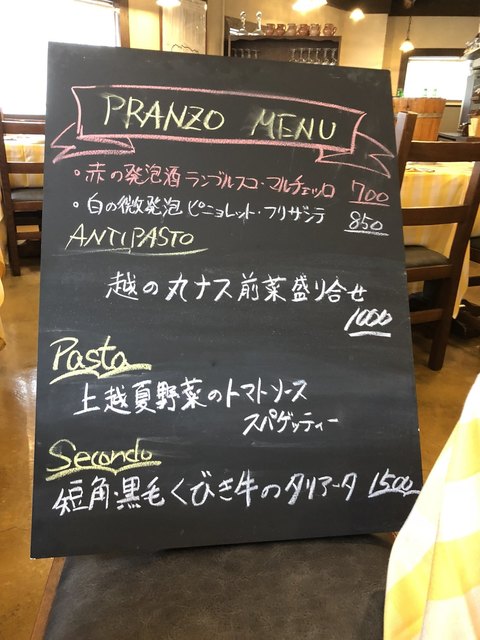 PRANZO MENU
・赤の発泡酒 ランブルスコ・マルチェッロ 700
・白の微発泡 ピニョレット・フリザンテ 850
ANTIPASTO
越の丸ナス前菜盛り合せ
1000
Pasta
上越夏野菜のトマトソース
スパゲッティー
Secondo
短角・黒毛くびき牛のタリアータ 1500